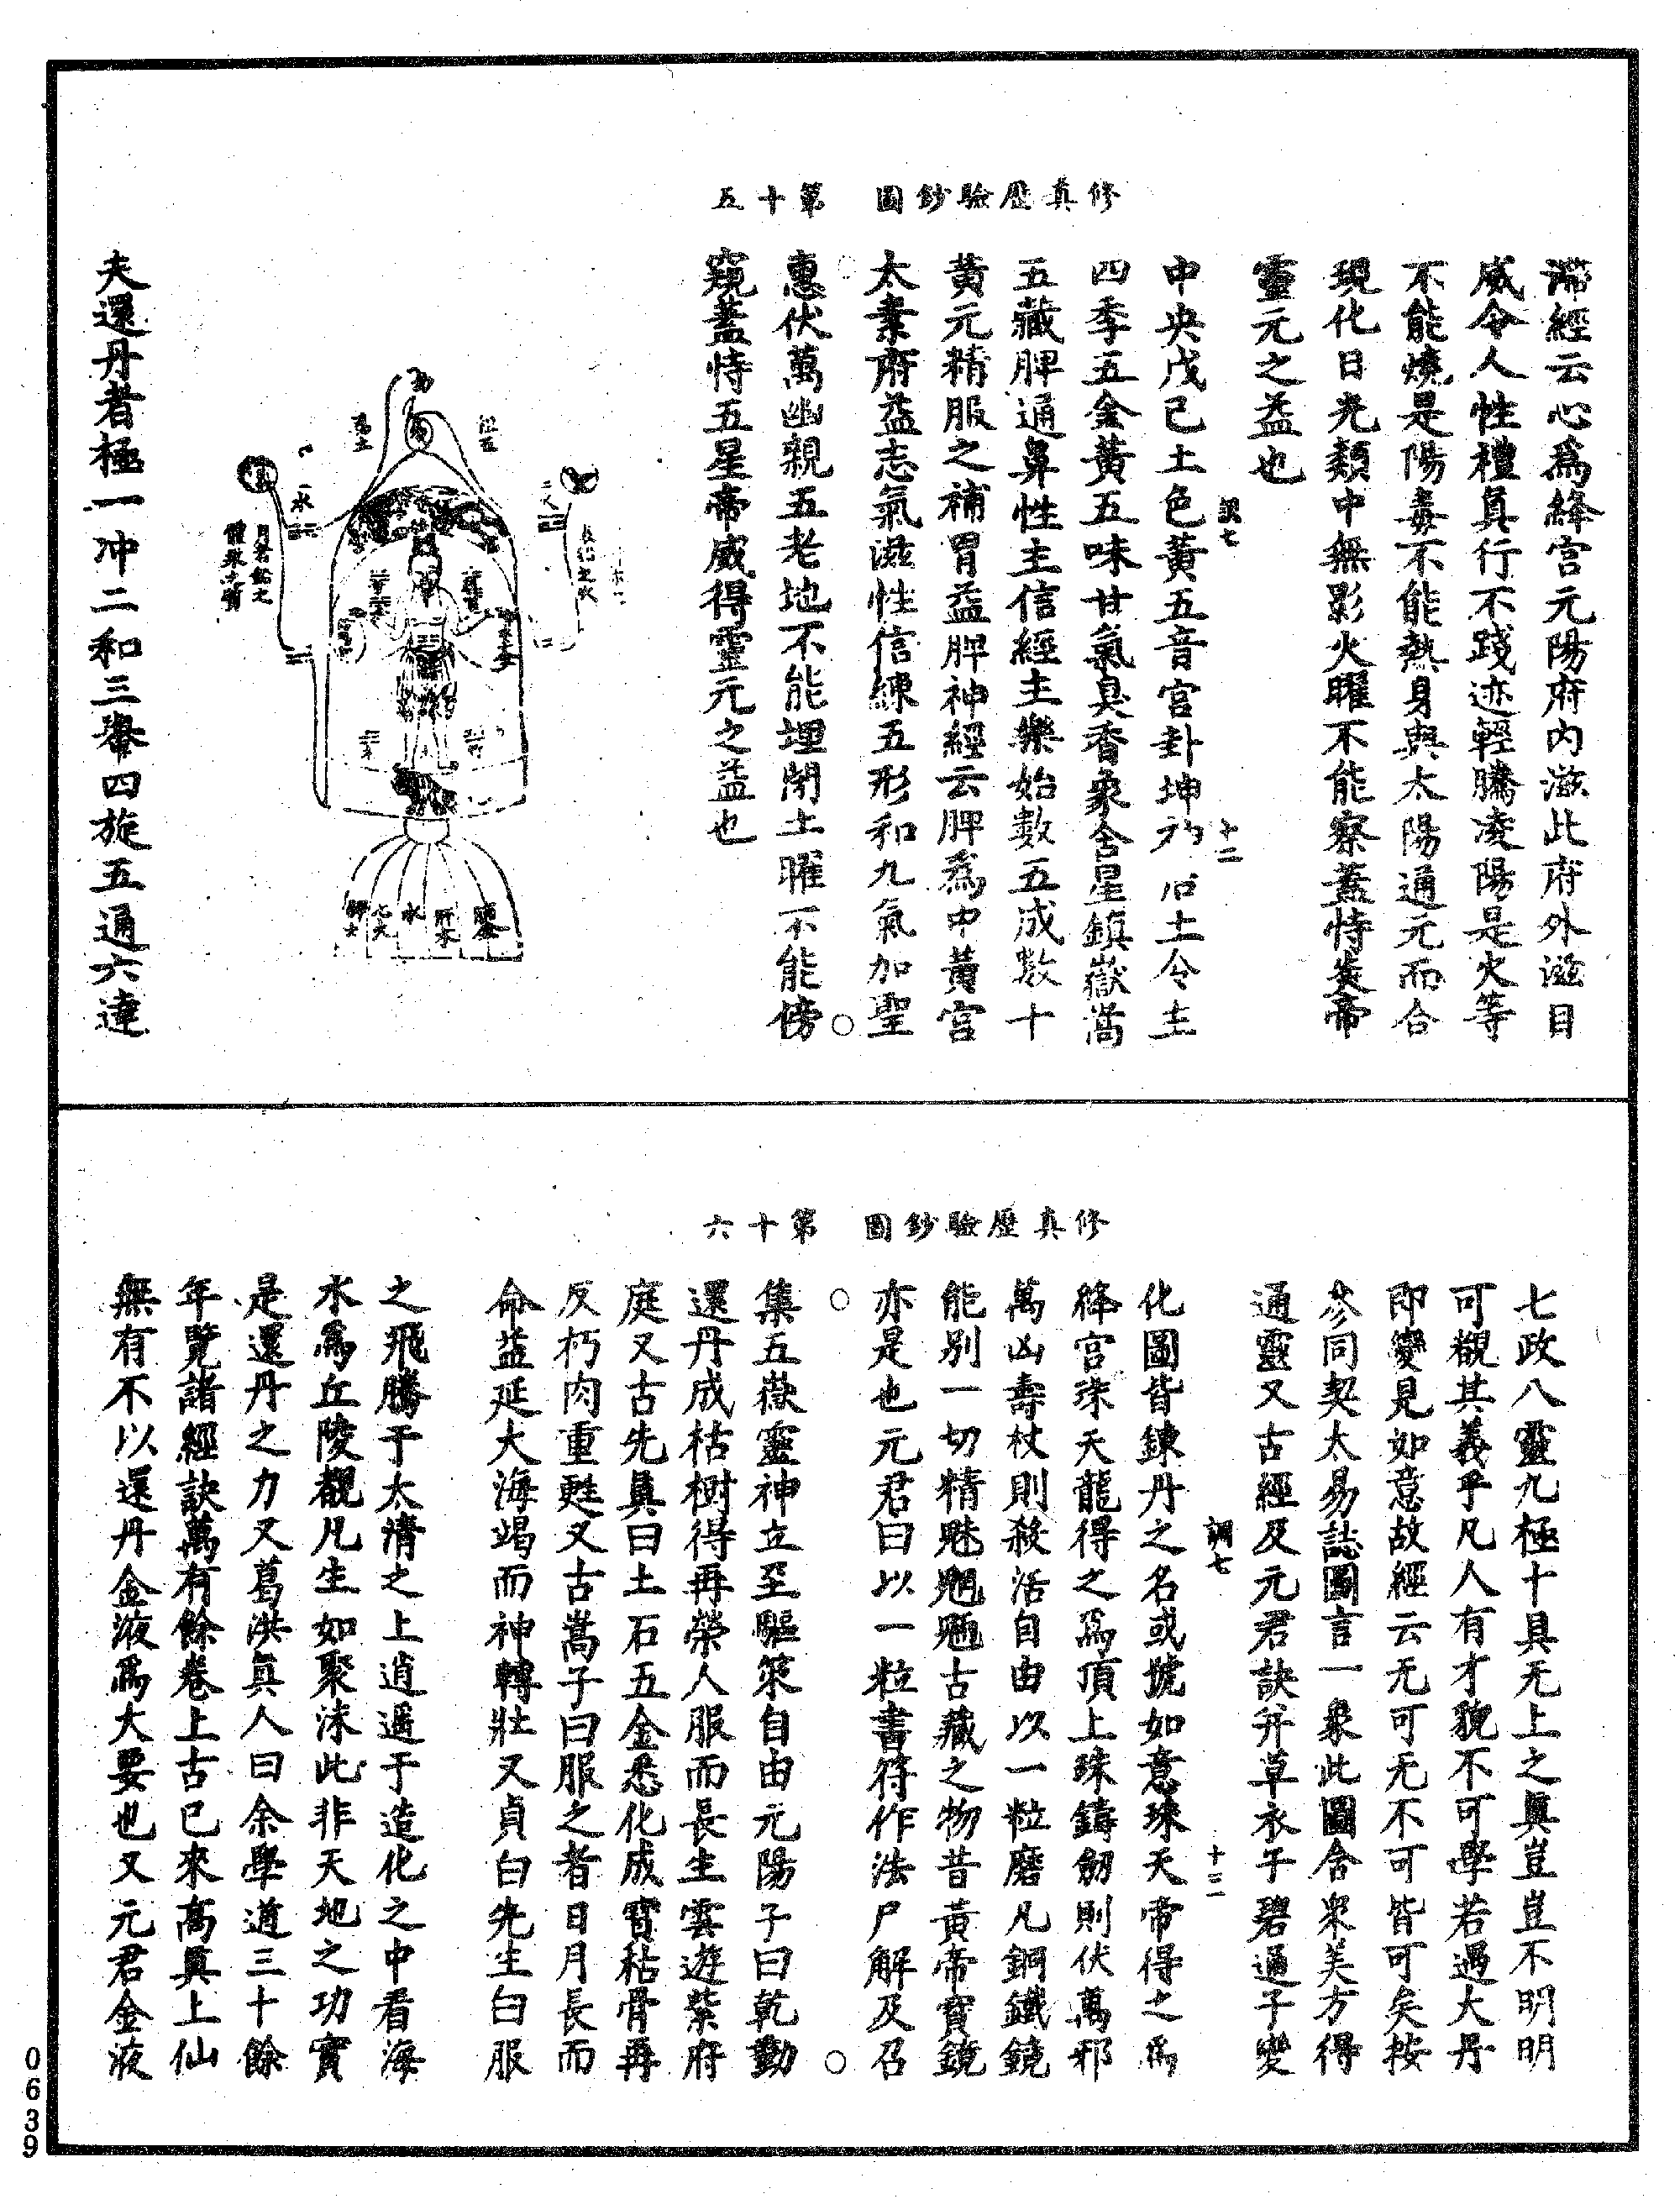 修真歷驗鈔圖　第十五
滯經云心為絳宮元陽府内滋此府外滋目
威令人性禮真行不踐迹輕騰凌陽是火等
不能燒是陽毒不能熱身與太陽通元而合
現化日光類中無影火曜不能察蓋恃炎帝
靈元之益也
中央戊己土色黃五音宮卦坤 土令主
四季五金黃五味甘氣臭香象含星鎮嶽嵩
五藏脾通鼻性主信經主樂始數五成數十
黃元精服之補胃益脾神經云脾為中黃宮
太素府益志氣滋性信練五形和九氣加聖
惠伏萬幽親五老地不能埋閉土曜不能傍
窺蓋恃五星帝威得靈元之益也
十二
水
夫還丹者極一冲二和三舉四旋五通六達
修真歷驗鈔圖　第十六
七政八靈九極十具无上之真豈豈不明明
可觀其義乎凡人有才貌不可學若遇大丹
即變見如意故經云无可无不可皆可矣按
參同契太易誌圖言一象此圖含衆美方得
通靈又古經及元君訣并草衣子碧通子變
化圖皆鍊丹之名或號如意珠天帝得之為
絳宮珠天龍得之為頂上珠鑄劒則伏萬邪
萬凶壽杖則殺活自由以一粒磨凡銅鐵鏡
能別一切精魅魍魎古藏之物昔黃帝寶鏡
亦是也元君曰以一粒書符作法尸解及召
集五嶽靈神立至驅策自由元陽子曰乾勤
還丹成枯樹得再榮人服而長生雲遊紫府
庭又古先真曰土石五金悉化成寶秥骨再
反朽肉重甦又古嵩子曰服之者日月長而
命益延大海竭而神轉壯又貞白先生曰服
調七
十三
之飛騰于太清之上逍遥于造化之中看海
水為丘陵觀凡生如聚沫此非天地之功實
是還丹之力又葛洪真人曰余學道三十餘
年覽諸經訣萬有餘卷上古已來高真上仙
無有不以還丹金液為大要也又元君金液
0639